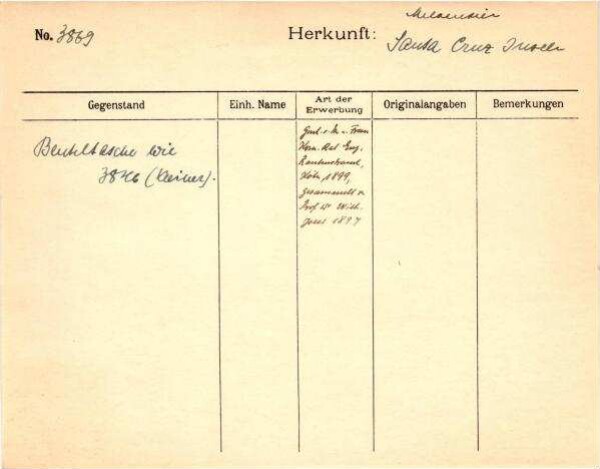 No. 3869
Herkunft: Melanesien
Santa Cruz Inseln
Gegenstand Einh. Name Art der Erwerbung Originalangaben Bemerkungen
Beuteltasche wie
3846 (kleiner).
Frau
Eug.
Rautenstrauch,
Köln, 1899,
gesammelt v.
Prof. Dr. Wilh.
Joest 1897